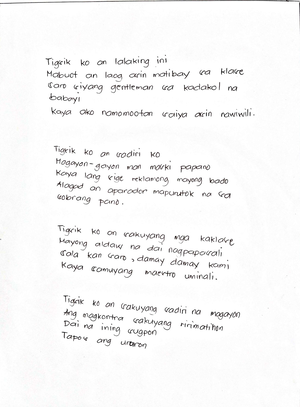 Tigsik ko an lalaking ini
Mabuot an laog asin matibay sa klase
Saro siyang gentleman sa kadakol na
babayi
Kaya ako namomootan saiya asin nawiwili.
Tigsik ko an sadiri ko
Magayon-gayon man maski papano
Kaya lang sige reklamong mayong bado
Alagad an aparador mapurutok na sa
sobrang pano.
Tigsik ko an sakuyang mga kaklase
Mayong aldaw na dai nagpapasali
Sala kan saro, damay damay kami
Kaya samuyang maestro uminali.
Tigsik ko an sakuyang sadiri na magayon
Ang magkontra sakuyang ririmatihon
Dai na ining sugpon
Tapos ang